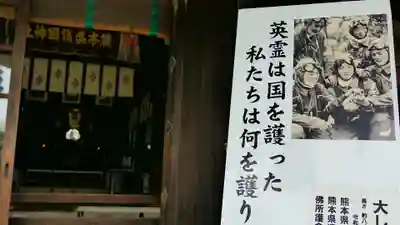 熊本県護国神
英霊は国を護った
私たちは何を護り
大レ
高さ 約八
熊本県
熊本県
佛所護念